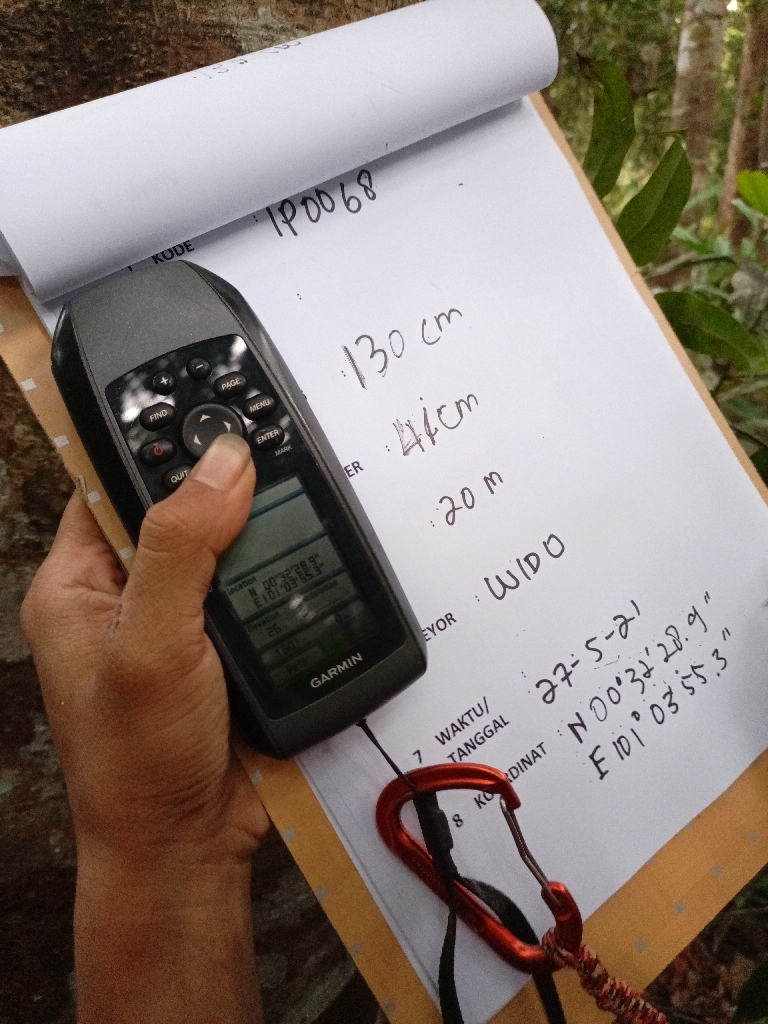 KODE : IP0068
:
: 130 cm
ER : 41cm
: 20 m
EYOR : WIDO
7 WAKTU/
TANGGAL : 27-5-21
8 KO RDINAT : N 00°32'28.9"
E 101°03'55.3"
+ -
PAGE
FIND MENU
ENTER
MARK
QUIT
Location
N 00°32'28.9"
E101°03'55.3"
GARMIN